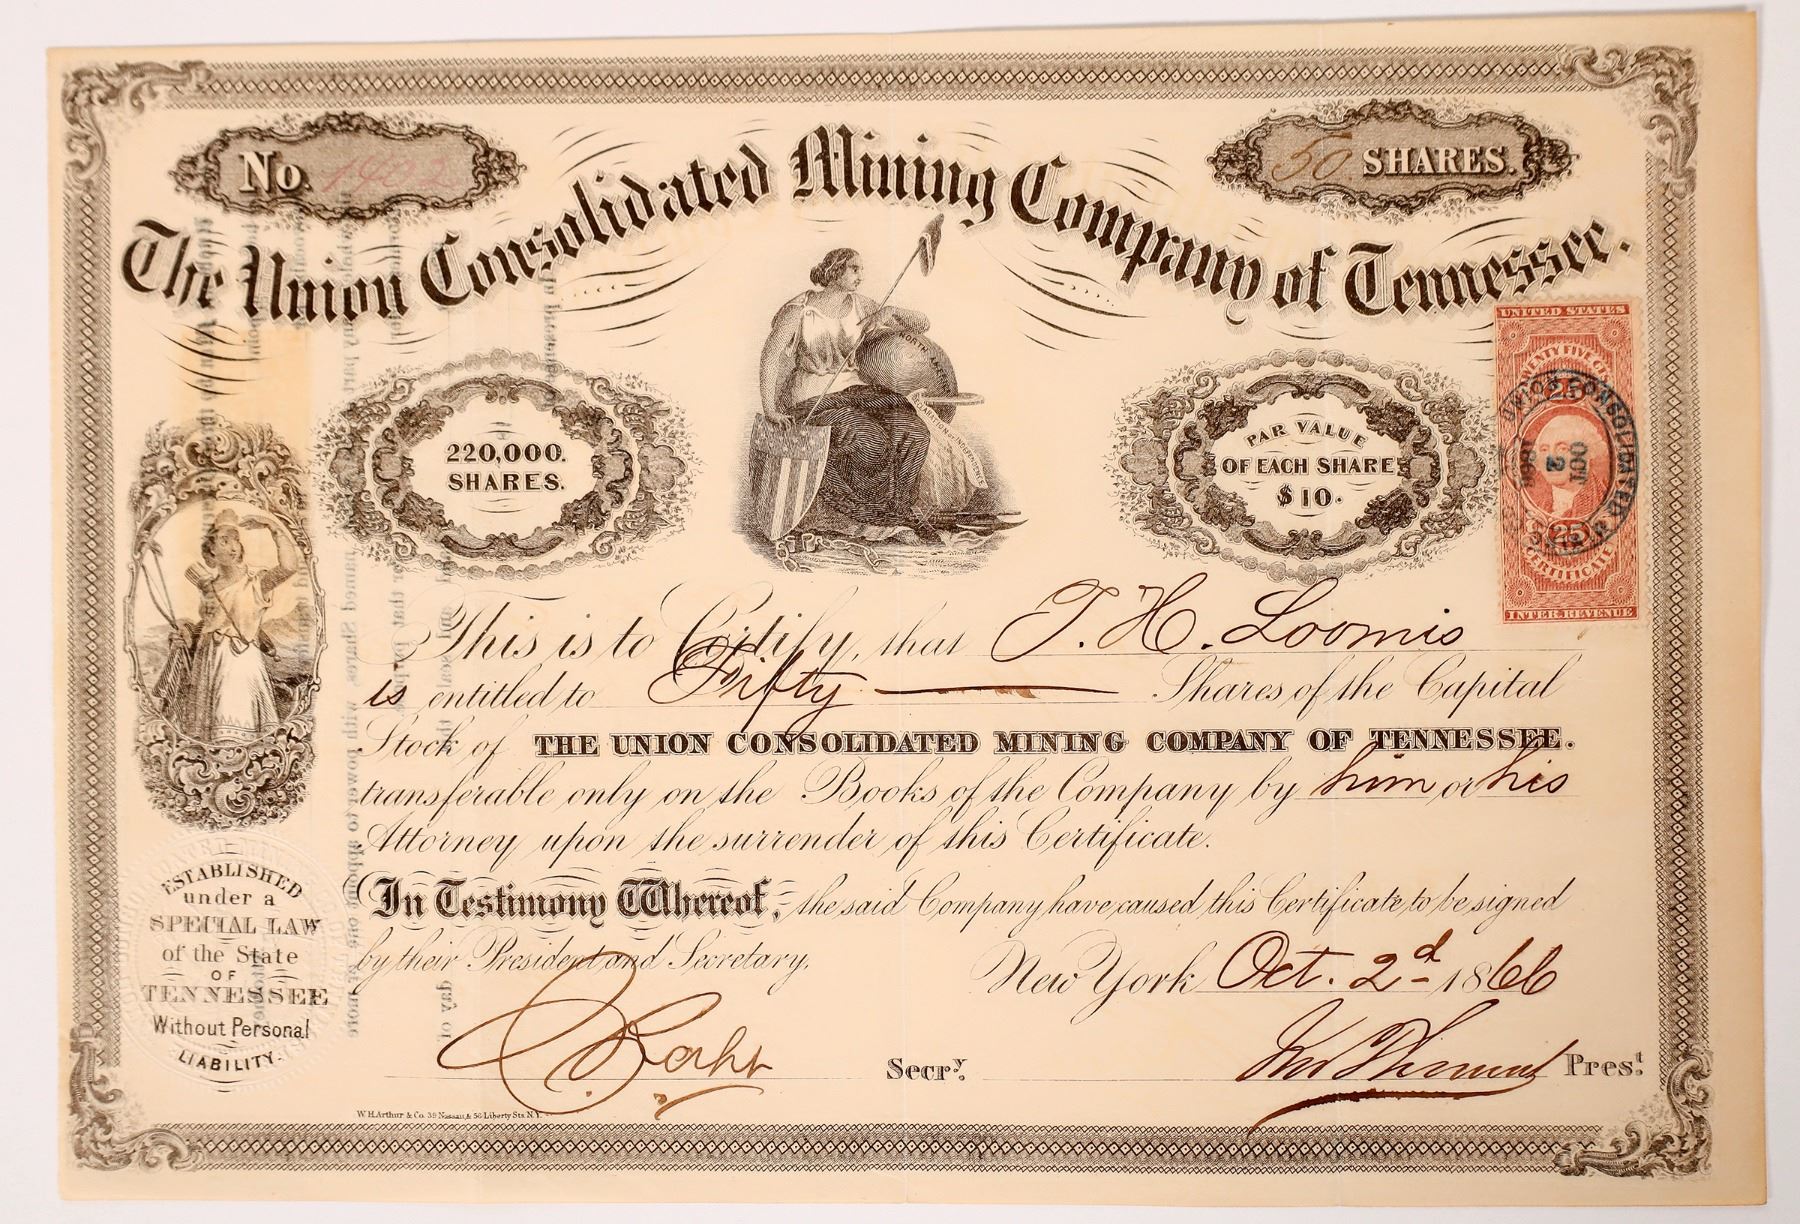 No. 1402
50 SHARES.
The Union Consolidated Mining Company of Tennessee.
220,000.
SHARES.
NORTH AMERICA
DECLARATION OF INDEPENDENCE
PAR VALUE
OF EACH SHARE
$10.
UNITED STATES
TWENTY FIVE CENTS
25
UNION CONSOLIDATED
OCT
2
1866
25
CERTIFICATE
INTER. REVENUE
This is to Certify, that J. H. Loomis
is entitled to Fifty Shares of the Capital
Stock of THE UNION CONSOLIDATED MINING COMPANY OF TENNESSEE.
transferable only on the Books of the Company by him or his
Attorney upon the surrender of this Certificate.
In Testimony Whereof, the said Company have caused this Certificate to be signed
by their President and Secretary.
New York Oct. 2d 1866
Secry.
Prest.
ESTABLISHED
under a
SPECIAL LAW
of the State
OF
TENNESSEE
Without Personal
LIABILITY.
W. H. Arthur & Co. 39 Nassau & 56 Liberty Sts. N.Y.